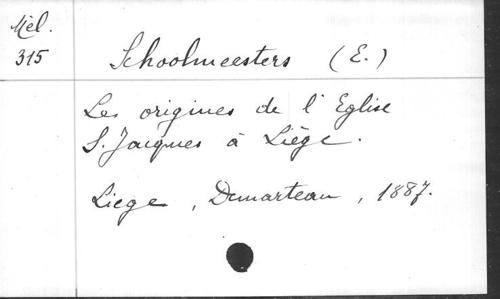 Mél.
315
Schoolmeesters (E.)
Les origines de l'Eglise
S. Jacques à Liège.
Liege, Demarteau, 1887.